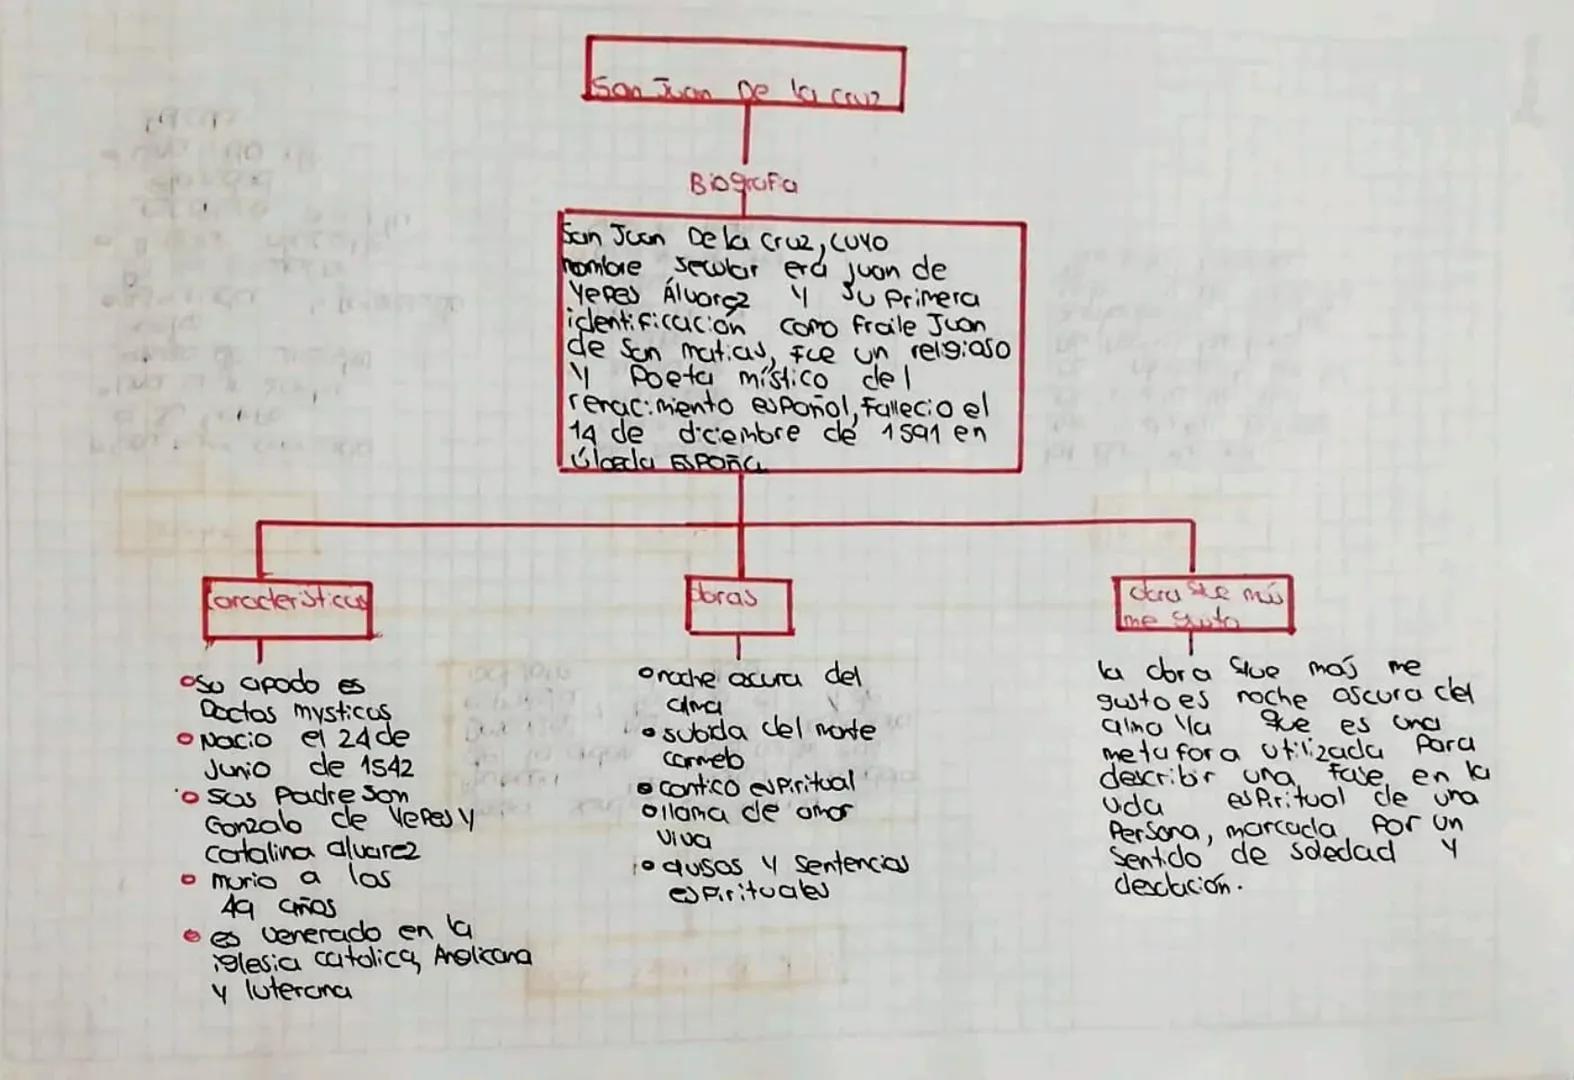 San Juan De la cruz
Biografia
San Juan De la Cruz, cuyo
nombre secular era juan de
Yepes Álvarez y su primera
identificación como fraile Juan
de San matias, fue un religioso
y Poeta místico del
renacimiento español, fallecio el
14 de diciembre de 1591 en
Úbeda ESPAÑA
Caracteristicas
•Su apodo es
Doctos mysticus
• Nacio el 24 de
Junio de 1542
• sus Padre son
Gonzalo de Yepes y
Catalina alvarez
• murio a los
49 años
• es venerado en la
iglesia catolica, Anglicana
y luterana
obras
•noche oscura del
alma
• subida del monte
carmelo
• cantico espiritual
•llama de amor
viva
• avisos y sentencias
espirituales
obra que más
me gusto
la obra que más me
gusto es noche oscura del
alma ya que es una
metafora utilizada Para
describir una fase en la
vida espiritual de una
Persona, marcada por un
Sentido de soledad y
desolación.